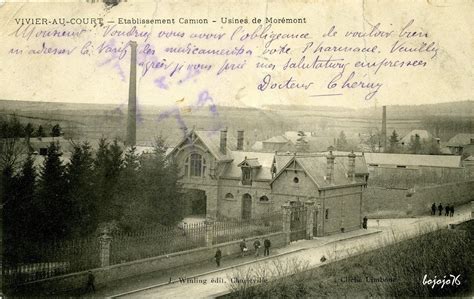 VIVIER-AU-COURT – Etablissement Camion – Usines de Morémont
Monsieur, Voudriez vous avoir l'obligeance de vouloir bien
m'adresser le Tarif des médicaments pharmacie. Veuillez
agréer je vous prie mes salutations empressées
Docteur
J. Winling édit. Charleville
Cliché
bojojo76